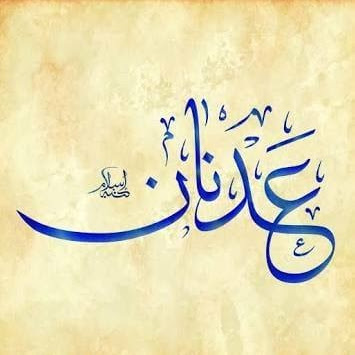 عدنان
كتبه إسلام